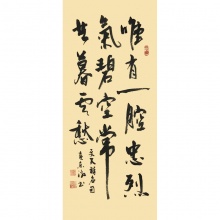 唯有一腔忠烈
氣碧空常
共暮云愁
文天祥名句
書